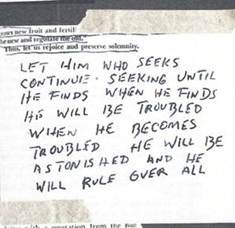 new fruit and fertil
the new and
Thus, let us rejoice and preserve solemnity.
LET HIM WHO SEEKS
CONTINUE SEEKING UNTIL
HE FINDS WHEN HE FINDS
HE WILL BE TROUBLED
WHEN HE BECOMES
TROUBLED HE WILL BE
ASTONISHED AND HE
WILL RULE OVER ALL
with a quotation from the